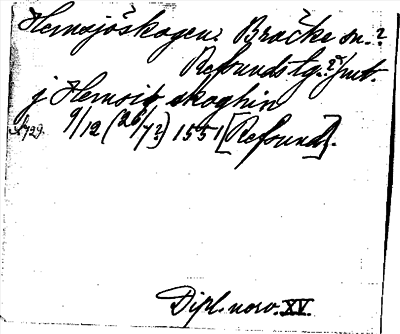 Hemsjöskogen? Bräcke sn.?
Refsunds tg.? Jmt.
j Hemsio skoghin
s. 129. 9/12 (26/7?) 1551 [Refsund].
Dipl. norv. XV.